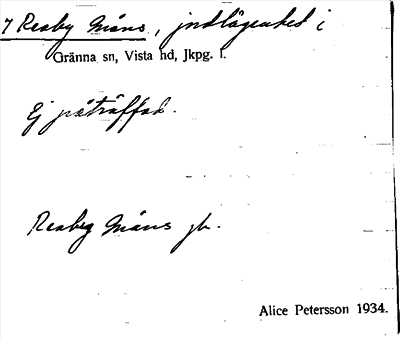 7 Reaby Måns, jndlägenhet i
Gränna sn, Vista hd, Jkpg. l.
Ej påträffad.
Reaby Måns jb.
Alice Petersson 1934.